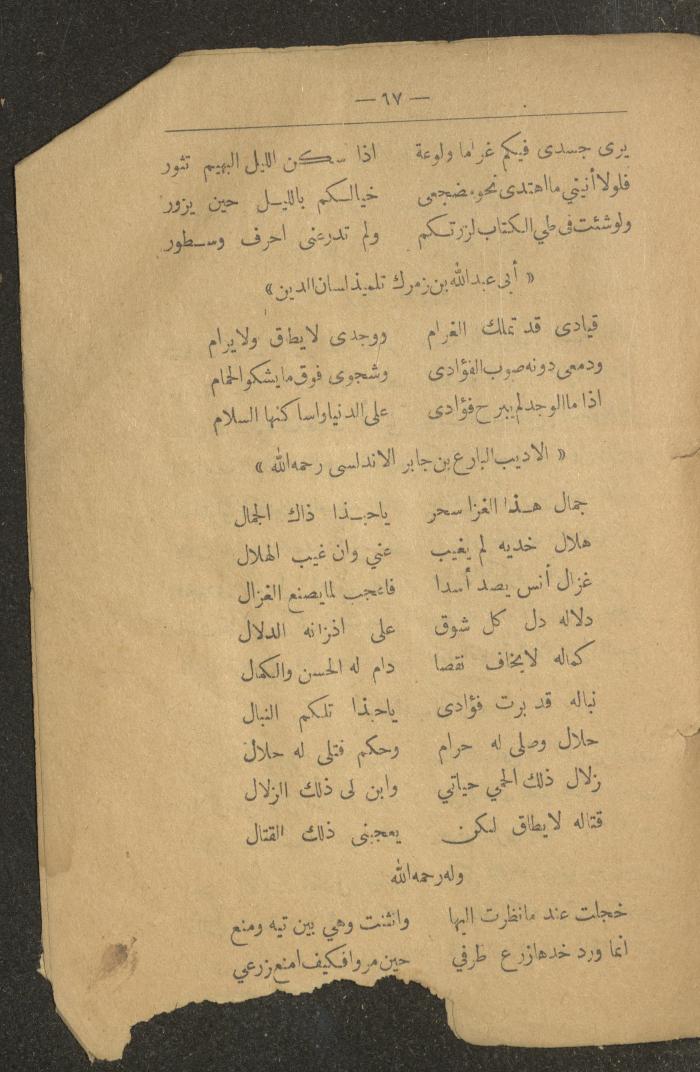 — ٦٧ —
يرى جسدى فيكم غراما ولوعة اذا سكن الليل البهيم تثور
فلولا أنيني ما اهتدى نحو مضجعى خيالكم بالليل حين يزور
ولو شئت فى طي الكتاب لزرتكم ولم تدر عنى احرف وسطور
« أبى عبد الله بن زمرك تلميذ لسان الدين »
قيادى قد تملك الغرام ووجدى لا يطاق ولا يرام
ودمعى دونه صوب الفؤادى وشجوى فوق ما يشكو الحمام
اذا ما الوجد لم يبرح فؤادى على الدنيا وساكنها السلام
« الاديب البارع بن جابر الاندلسى رحمه الله »
جمال هذا الغزا سحر ياحبذا ذاك الجمال
هلال خديه لم يغيب عني وان غيب الهلال
غزال أنس يصد أسدا فاعجب لما يصنع الغزال
دلاله دل كل شوق على اذ زانه الدلال
كماله لا يخاف نقصا دام له الحسن والكمال
نباله قد برت فؤادى ياحبذا تلكم النبال
حلال وصلى له حرام وحكم قتلى له حلال
زلال ذلك الحمي حياتي وابن لى ذلك الزلال
قتاله لا يطاق لكن يعجبنى ذلك القتال
وله رحمه الله
خجلت عند ما نظرت اليها وانثنت وهي بين تيه ومنع
انما ورد خدها زرع طرفي حين مر وا فكيف امنع زرعي